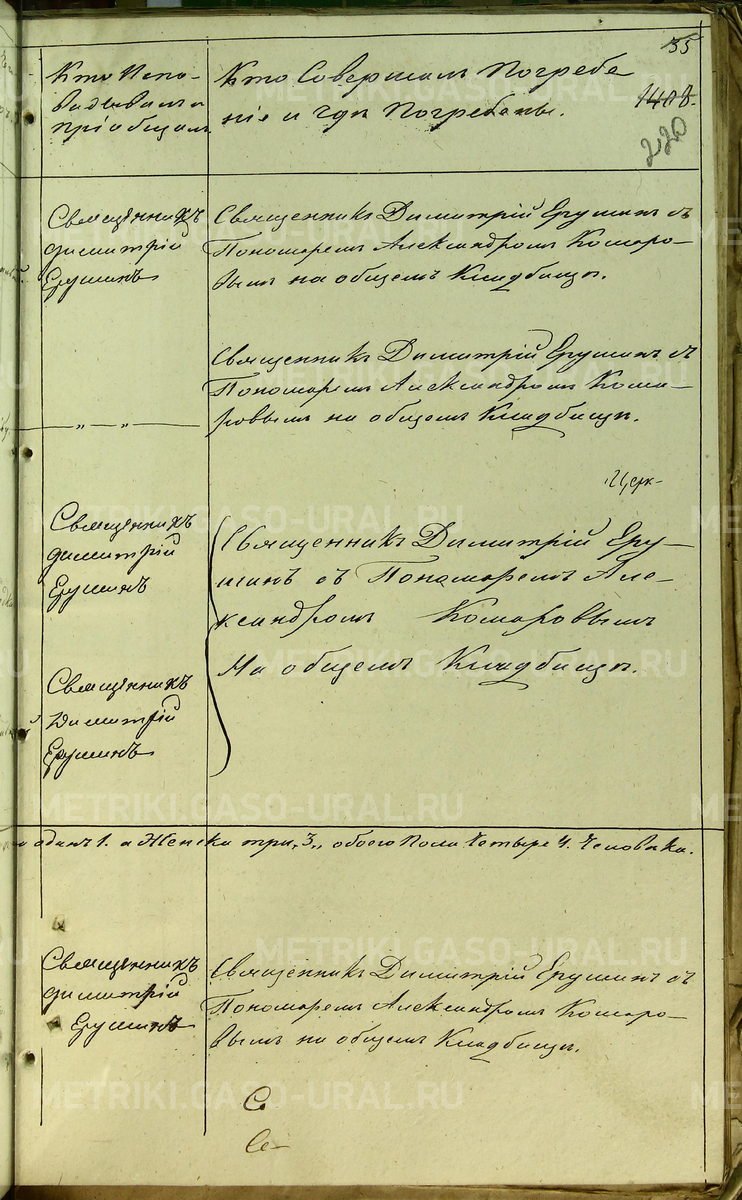 35
1408.
220
Кто Испо-
ведывалъ и
пріобщалъ
Кто Совершалъ Погребе
ніе и гдѣ Погребены.
Священникъ
Димитрій
Ерушинъ
Священникъ Димитрій Ерушинъ съ
Пономаремъ Александромъ Комаро-
вымъ на общемъ Кладбищѣ.
— „ — „ —
Священникъ Димитрій Ерушинъ съ
Пономаремъ Александромъ Кома-
ровымъ на общемъ Кладбищѣ.
Церк-
Священникъ
Димитрій
Ерушинъ
Священникъ Димитрій Еру-
шинъ съ Пономаремъ Але-
ксандромъ Комаровымъ
На общемъ Кладбищѣ.
Священникъ
Димитрій
Ерушинъ
одинъ 1. а Женска три „3„ обоего Пола Четыре 4. Человѣка.
Священникъ
Димитрій
Ерушинъ
Священникъ Димитрій Ерушинъ съ
Пономаремъ Александромъ Комаро-
вымъ на общемъ Кладбищѣ.
С.
METRIKI.GASO-URAL.RU